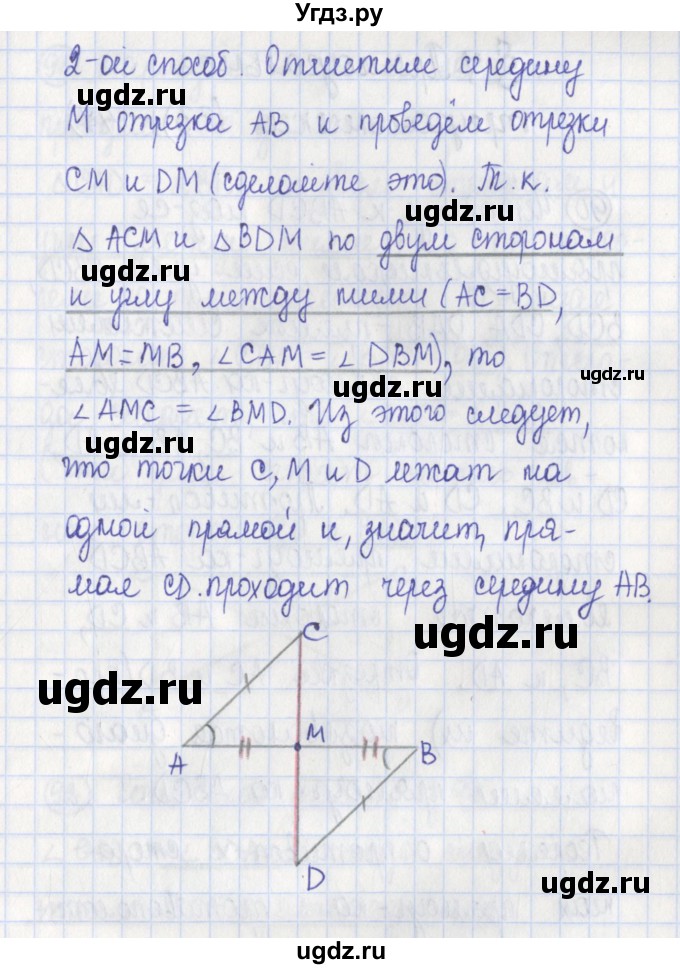 Угдз.ру
2-ой способ. Отметим середину
ugdz.ru
М отрезка АВ и проведём отрезки
СМ и DM (сделайте это). Т.к.
ugdz.ru
△ ACM и △ BDM по двум сторонам
ugdz.ru
и углу между ними (AC=BD,
AM=MB, ∠CAM=∠DBM), то
ugdz.ru
ugdz.ru
∠AMC = ∠BMD. Из этого следует,
ugdz.ru
что точки C, M и D лежат на
одной прямой и, значит, пря-
ugdz.ru
мая CD проходит через середину AB.
C
ugdz.ru
ugdz.ru
A M B
D
ugdz.ru
ugdz.ru